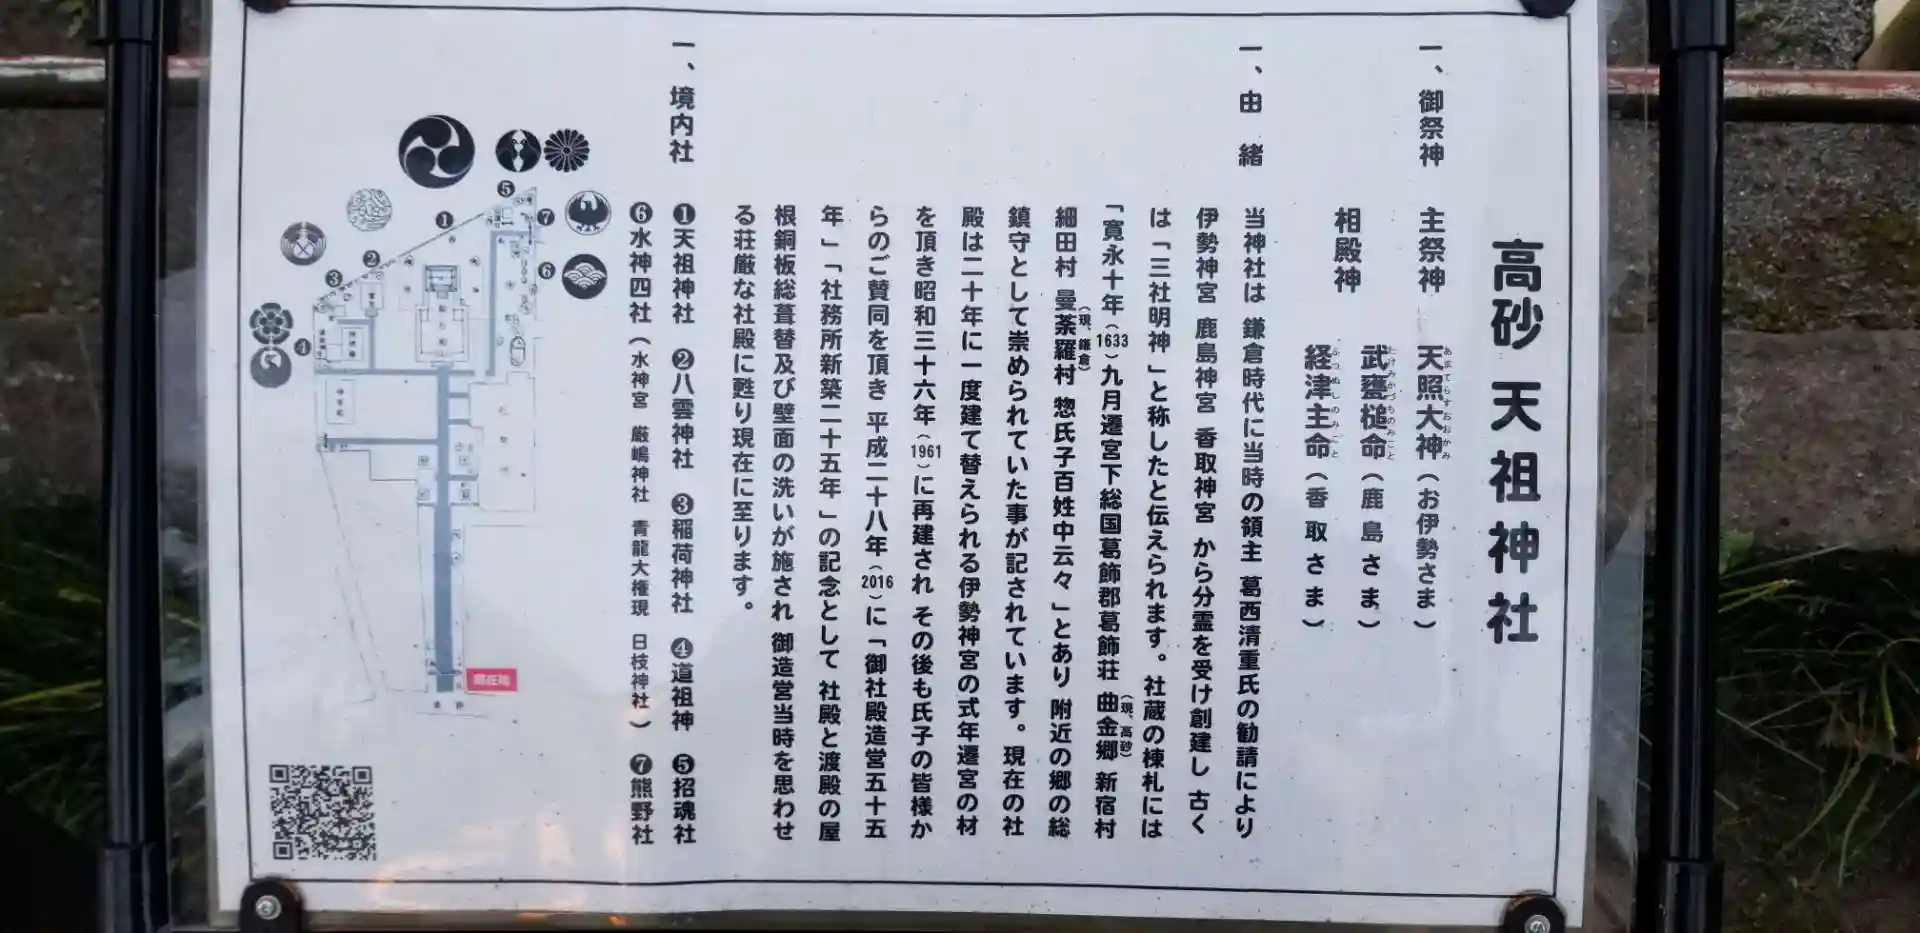 高砂 天祖神社
一、御祭神 主祭神 天照大神（お伊勢さま）
あまてらすおおかみ
相殿神 武甕槌命（鹿島さま）
たけみかづちのみこと
経津主命（香取さま）
ふつぬしのみこと
一、由 緒 当神社は 鎌倉時代に当時の領主 葛西清重氏の勧請により
伊勢神宮 鹿島神宮 香取神宮 から分霊を受け創建し 古く
は「三社明神」と称したと伝えられます。社蔵の棟札には
「寛永十年（1633）九月遷宮下総国葛飾郡葛飾荘 曲金郷 新宿村
（現、高砂）
細田村 曼荼羅村 惣氏子百姓中云々」とあり 附近の郷の総
（現、鎌倉）
鎮守として崇められていた事が記されています。現在の社
殿は二十年に一度建て替えられる伊勢神宮の式年遷宮の材
を頂き昭和三十六年（1961）に再建され その後も氏子の皆様か
らのご賛同を頂き 平成二十八年（2016）に「御社殿造営五十五
年」「社務所新築二十五年」の記念として 社殿と渡殿の屋
根銅板総葺替及び壁面の洗いが施され 御造営当時を思わせ
る荘厳な社殿に甦り現在に至ります。
一、境内社 ❶天祖神社 ❷八雲神社 ❸稲荷神社 ❹道祖神 ❺招魂社
❻水神四社（水神宮 厳嶋神社 青龍大権現 日枝神社） ❼熊野社
❶
❷
❸
❹
❺
❻
❼
現在地